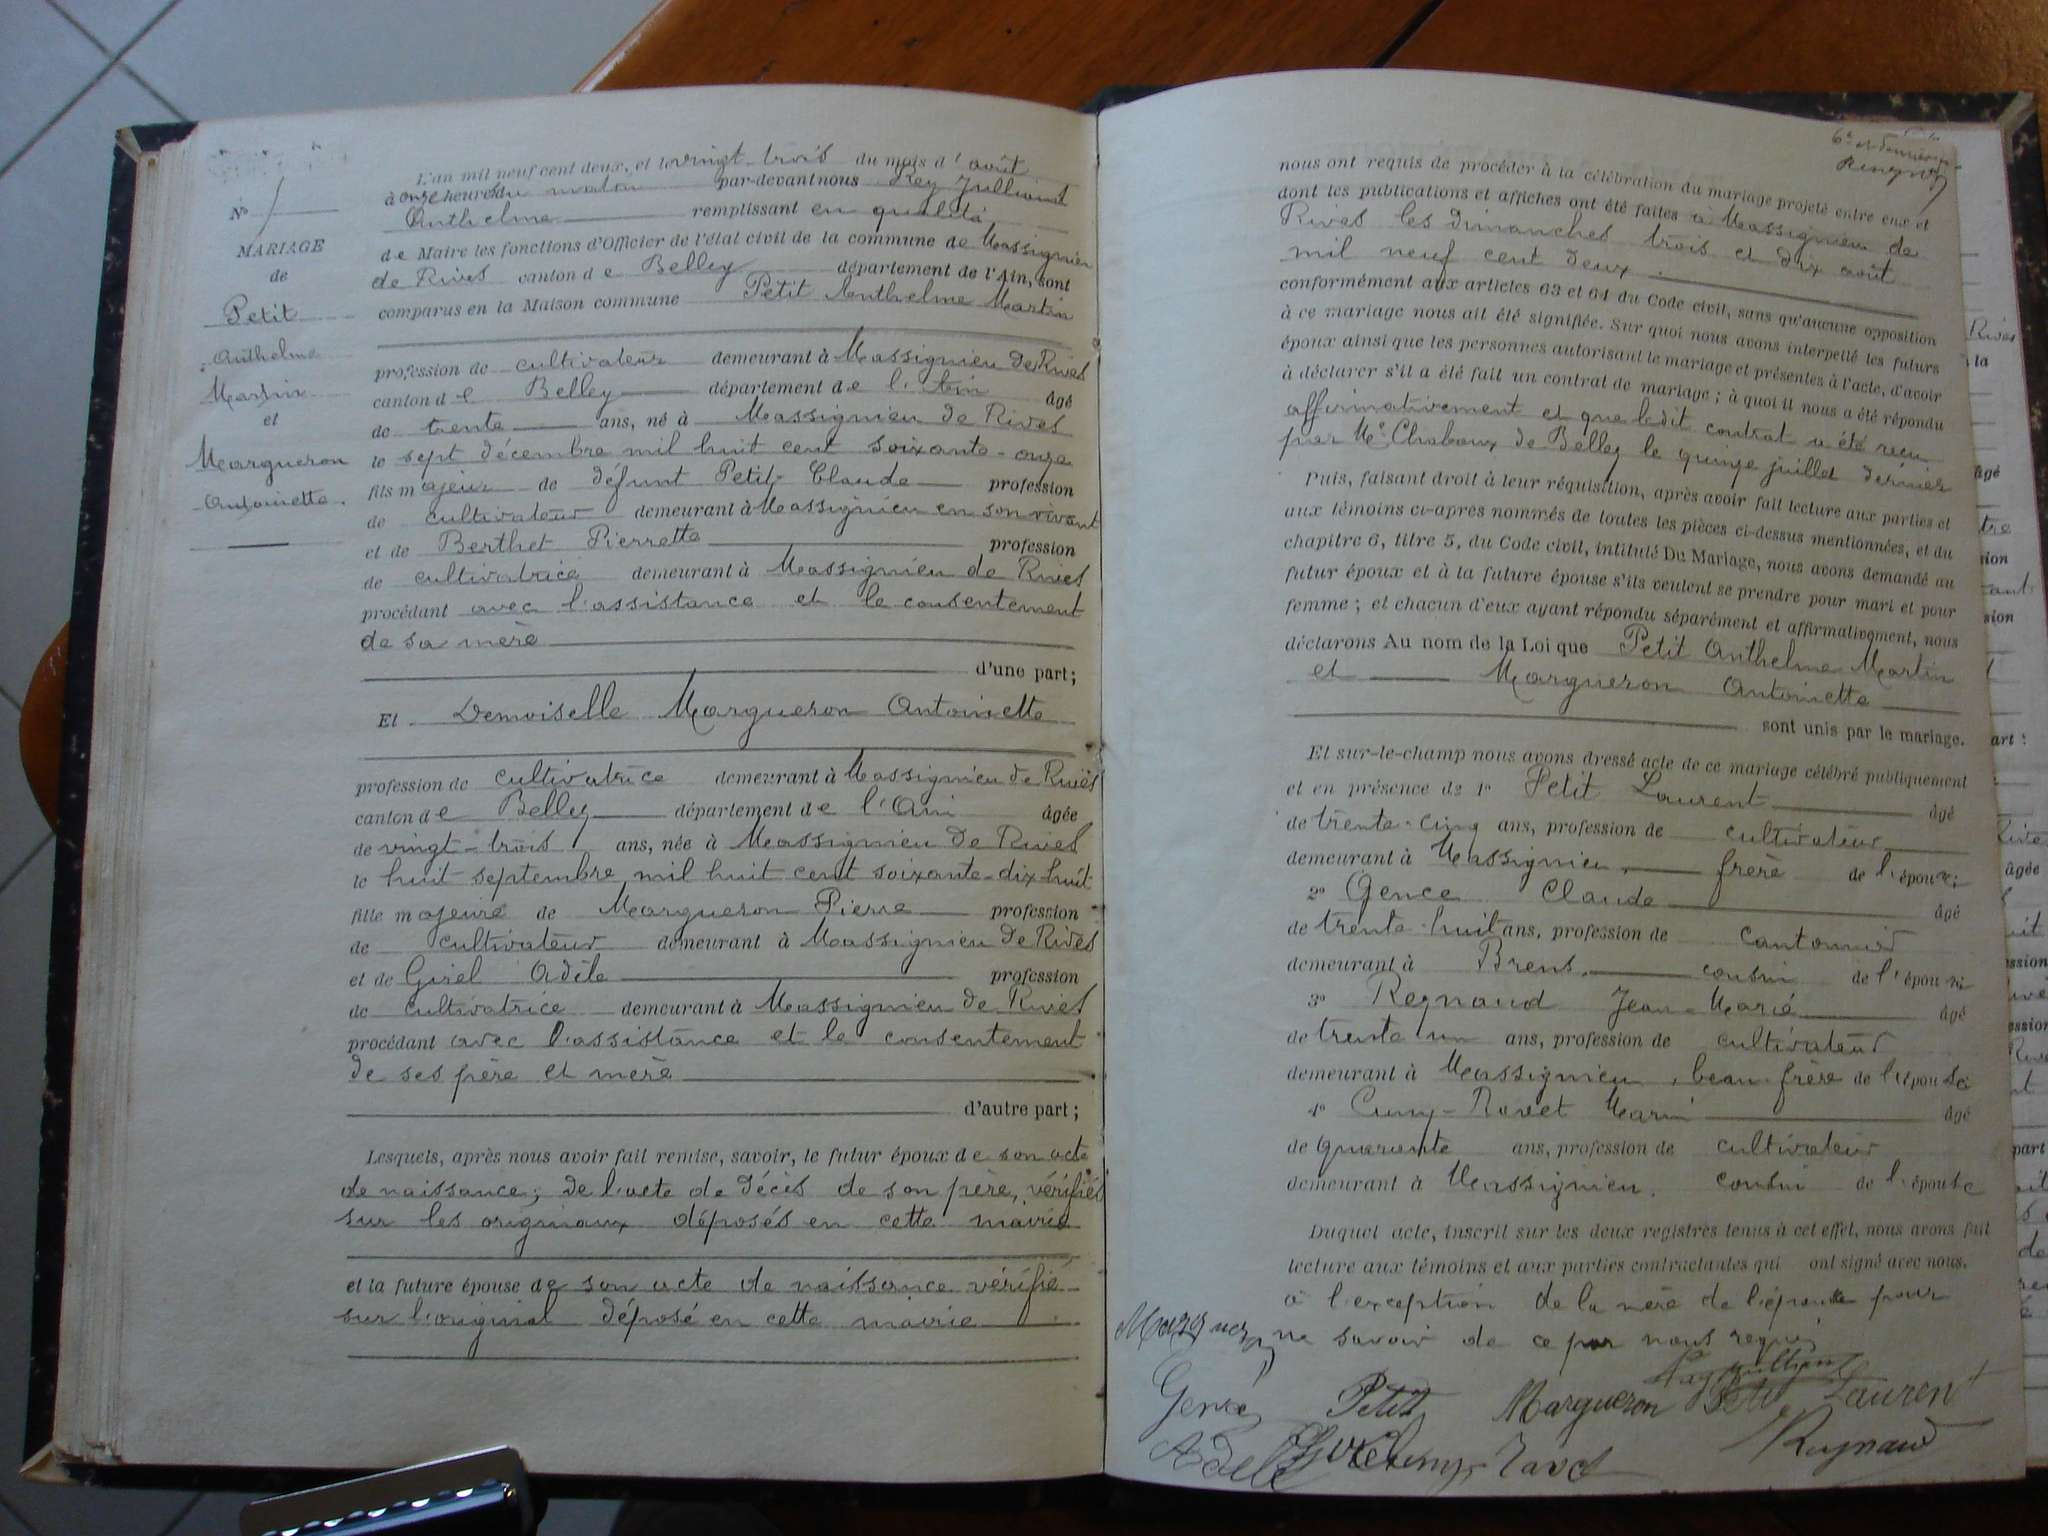 L'an mil neuf cent deux, et le vingt-trois du mois d'août
à onze heures du matin par-devant nous Rey Jullien
Anthelme remplissant en qualité
de Maire les fonctions d'Officier de l'état civil de la commune de Massignieu
de Rives canton de Belley département de l'Ain, sont
comparus en la Maison commune Petit Anthelme Martin
profession de cultivateur demeurant à Massignieu de Rives
canton de Belley département de l'Ain âgé
de trente ans, né à Massignieu de Rives
le sept décembre mil huit cent soixante-onze
fils majeur de défunt Petit Claude profession
de cultivateur demeurant à Massignieu en son vivant
et de Berthet Pierrette profession
de cultivatrice demeurant à Massignieu de Rives
procédant avec l'assistance et le consentement
de sa mère
d'une part;
Et Demoiselle Margueron Antoinette
profession de cultivatrice demeurant à Massignieu de Rives
canton de Belley département de l'Ain âgée
de vingt-trois ans, née à Massignieu de Rives
le huit septembre mil huit cent soixante-dix-huit
fille majeure de Margueron Pierre profession
de cultivateur demeurant à Massignieu de Rives
et de Girel Adèle profession
de cultivatrice demeurant à Massignieu de Rives
procédant avec l'assistance et le consentement
de ses père et mère
d'autre part;
Lesquels, après nous avoir fait remise, savoir, le futur époux de son acte
de naissance; de l'acte de décès de son père, vérifiés
sur les originaux déposés en cette mairie
et la future épouse de son acte de naissance vérifié
sur l'original déposé en cette mairie
No 1
MARIAGE
de
Petit
Anthelme
Martin
et
Margueron
Antoinette.
nous ont requis de procéder à la célébration du mariage projeté entre eux et
dont les publications et affiches ont été faites à Massignieu de
Rives les dimanches trois et dix août
mil neuf cent deux
conformément aux articles 63 et 64 du Code civil, sans qu'aucune opposition
à ce mariage nous ait été signifiée. Sur quoi nous avons interpellé les futurs
époux ainsi que les personnes autorisant le mariage et présentes à l'acte, d'avoir
à déclarer s'il a été fait un contrat de mariage; à quoi il nous a été répondu
affirmativement et que ledit contrat a été reçu
par Me Chaboux de Belley le quinze juillet dernier
Puis, faisant droit à leur réquisition, après avoir fait lecture aux parties et
aux témoins ci-après nommés de toutes les pièces ci-dessus mentionnées, et du
chapitre 6, titre 5, du Code civil, intitulé Du Mariage, nous avons demandé au
futur époux et à la future épouse s'ils veulent se prendre pour mari et pour
femme; et chacun d'eux ayant répondu séparément et affirmativement, nous
déclarons Au nom de la Loi que Petit Anthelme Martin
et Margueron Antoinette
sont unis par le mariage.
Et sur-le-champ nous avons dressé acte de ce mariage célébré publiquement
et en présence de 1o Petit Laurent âgé
de trente-cinq ans, profession de cultivateur
demeurant à Massignieu, frère de l'époux;
2o Gence Claude âgé
de trente-huit ans, profession de cantonnier
demeurant à Brens, cousin de l'époux
3o Reynaud Jean-Marie âgé
de trente un ans, profession de cultivateur
demeurant à Massignieu, beau-frère de l'épouse
4o Cuny-Ravet Marin âgé
de quarante ans, profession de cultivateur
demeurant à Massignieu, cousin de l'épouse
Duquel acte, inscrit sur les deux registres tenus à cet effet, nous avons fait
lecture aux témoins et aux parties contractantes qui ont signé avec nous.
à l'exception de la mère de l'époux pour
ne savoir de ce par nous requis
Gence Petit Margueron Petit Laurent
Adèle Girel Cuny-Ravet Reynaud